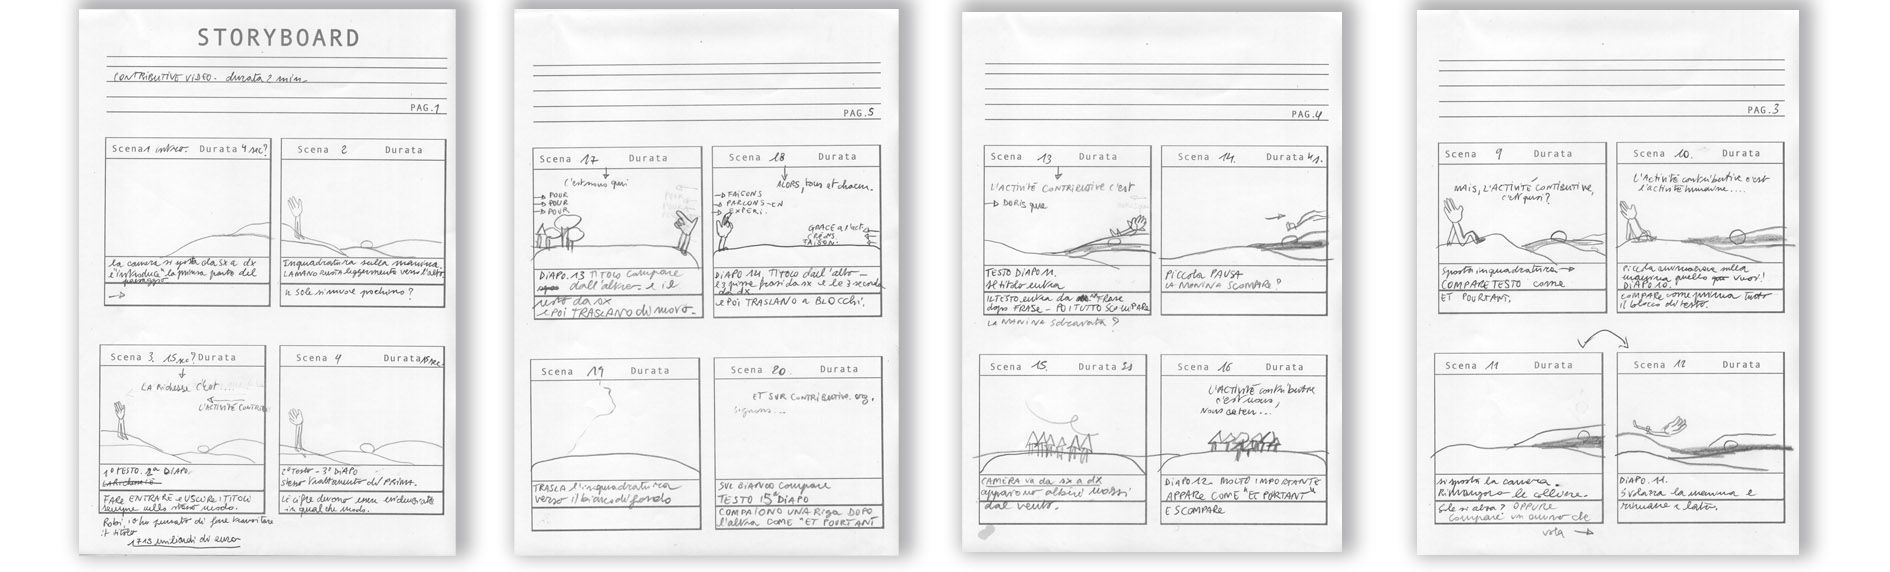 STORYBOARD
CONTRIBUTIVE VIDEO. durata 2 min.
PAG.1
Scena 1 intro. Durata 4 sec?
la camera si sposta da sx a dx
e "introduce" la prima parte del
paesaggio
Scena 2 Durata
Inquadratura sulla manina
LA MANO ruota leggermente verso l'alto
il sole si muove pochino?
Scena 3. 15 sec? Durata
LA RICHESSE C'EST....
L'ACTIVITÉ CONTRIB
1° TESTO. 2ª DIAPO.
FARE ENTRARE e USCIRE I TITOLI
sempre nello stesso modo.
Robi, io ho pensato di fare transitare
il titolo
1713 miliardi di euro
Scena 4 Durata 15 sec.
2° Testo - 3ª DIAPO
stesso trattamento di PRIMA.
Le cifre devono essere evidenziate
in qualche modo.
PAG.5
Scena 17 Durata
C'est nous qui
POUR
POUR
POUR
DIAPO. 13 TITOLO compare
dall'altro e il
resto da sx
e poi TRASLANO di nuovo.
Scena 18 Durata
ALORS, tous et chacun.
FAISONS
PARLONS-EN
EXPERI.
GRACE a l'act
DIAPO 14. TITOLO dall'alto -
e 3 prime frasi da sx e le 3 seconde
da dx
e poi TRASLANO a BLOCCHI.
Scena 19 Durata
TRASLA l'inquadratura
verso il bianco di fondo
Scena 20. Durata
ET SUR CONTRIBUTIVE.org,
signons...
SUL BIANCO compare
TESTO 15ª DIAPO
COMPAIONO UNA RIGA DOPO
l'altra COME "ET POURTANT
PAG.4
Scena 13 Durata
L'ACTIVITÉ CONTRIBUTIVE C'EST
DORIS que
TESTO DIAPO 11.
Il titolo entra
IL TESTO entra da FRASE
dopo FRASE - POI TUTTO SCOMPARE
LA MANINA sdraiata?
Scena 14. Durata 4s.
PICCOLA PAUSA
LA MANINA SCOMPARE?
Scena 15. Durata
CAMERA VA da sx a dx
appaiono alberi mossi
dal vento.
Scena 16 Durata
L'ACTIVITÉ contributive
c'est nous,
DIAPO 12. MOLTO IMPORTANTE
APPARE COME "ET PORTANT"
E SCOMPARE
PAG.3
Scena 9 Durata
MAIS, L'ACTIVITÉ CONTIBUTIVE,
c'est quoi?
Sposta inquadratura
COMPARE TESTO come
ET POURTANT.
Scena 10. Durata
L'Activité contributive c'est
l'activité humaine....
Piccola animazione sulla
manina quello che vuoi!
DIAPO 10.
COMPARE come prima tutto
il blocco di testo.
Scena 11 Durata
si sposta la camera.
Rimangono le colline.
Sole si alza? OPPURE
compare un omino che
vola
Scena 12 Durata
DIAPO. 11.
Svolazza la manina e
rimane a lato.